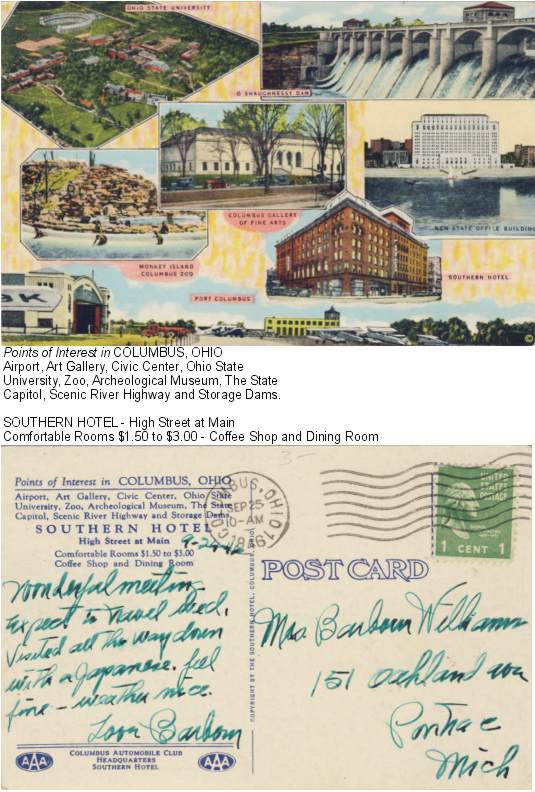 OHIO STATE UNIVERSITY
O'SHAUGHNESSY DAM
COLUMBUS GALLERY
OF FINE ARTS
NEW STATE OFFICE BUILDING
MONKEY ISLAND
COLUMBUS ZOO
SOUTHERN HOTEL
PORT COLUMBUS
Points of Interest in COLUMBUS, OHIO
Airport, Art Gallery, Civic Center, Ohio State
University, Zoo, Archeological Museum, The State
Capitol, Scenic River Highway and Storage Dams.
SOUTHERN HOTEL - High Street at Main
Comfortable Rooms $1.50 to $3.00 - Coffee Shop and Dining Room
3-
Points of Interest in COLUMBUS, OHIO
Airport, Art Gallery, Civic Center, Ohio State
University, Zoo, Archeological Museum, The State
Capitol, Scenic River Highway and Storage Dams.
SOUTHERN HOTEL
High Street at Main
Comfortable Rooms $1.50 to $3.00
Coffee Shop and Dining Room
COLUMBUS, OHIO
SEP 25
10-AM
1946
UNITED
STATES
POSTAGE
1 CENT 1
POST CARD
COPYRIGHT BY THE SOUTHERN HOTEL, COLUMBUS, OHIO
Wonderful meeting
Expect to travel Wed.
Visited all the way down
with a Japanese. feel
fine - weather nice.
Love Barbour
Mrs. Barbour Williams
151 Oakland ave
Pontiac
Mich
AAA
COLUMBUS AUTOMOBILE CLUB
HEADQUARTERS
SOUTHERN HOTEL
AAA